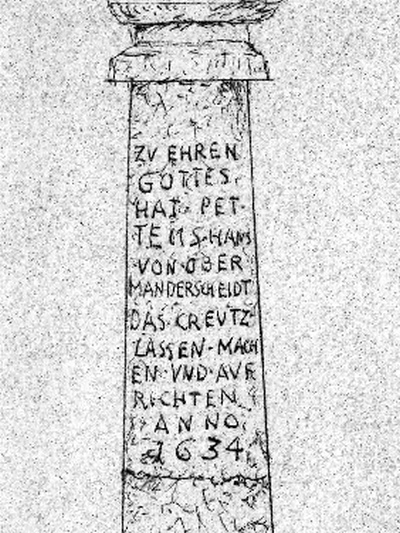 ZV EHREN
GOTTES.
HAT· PET·
TEMS·HANS
·VON·OBER
MANDERSCHEIDT
DAS·CREVTZ
LASSEN·MACH
EN·VND·AVF
RICHTEN
ANNO
1634